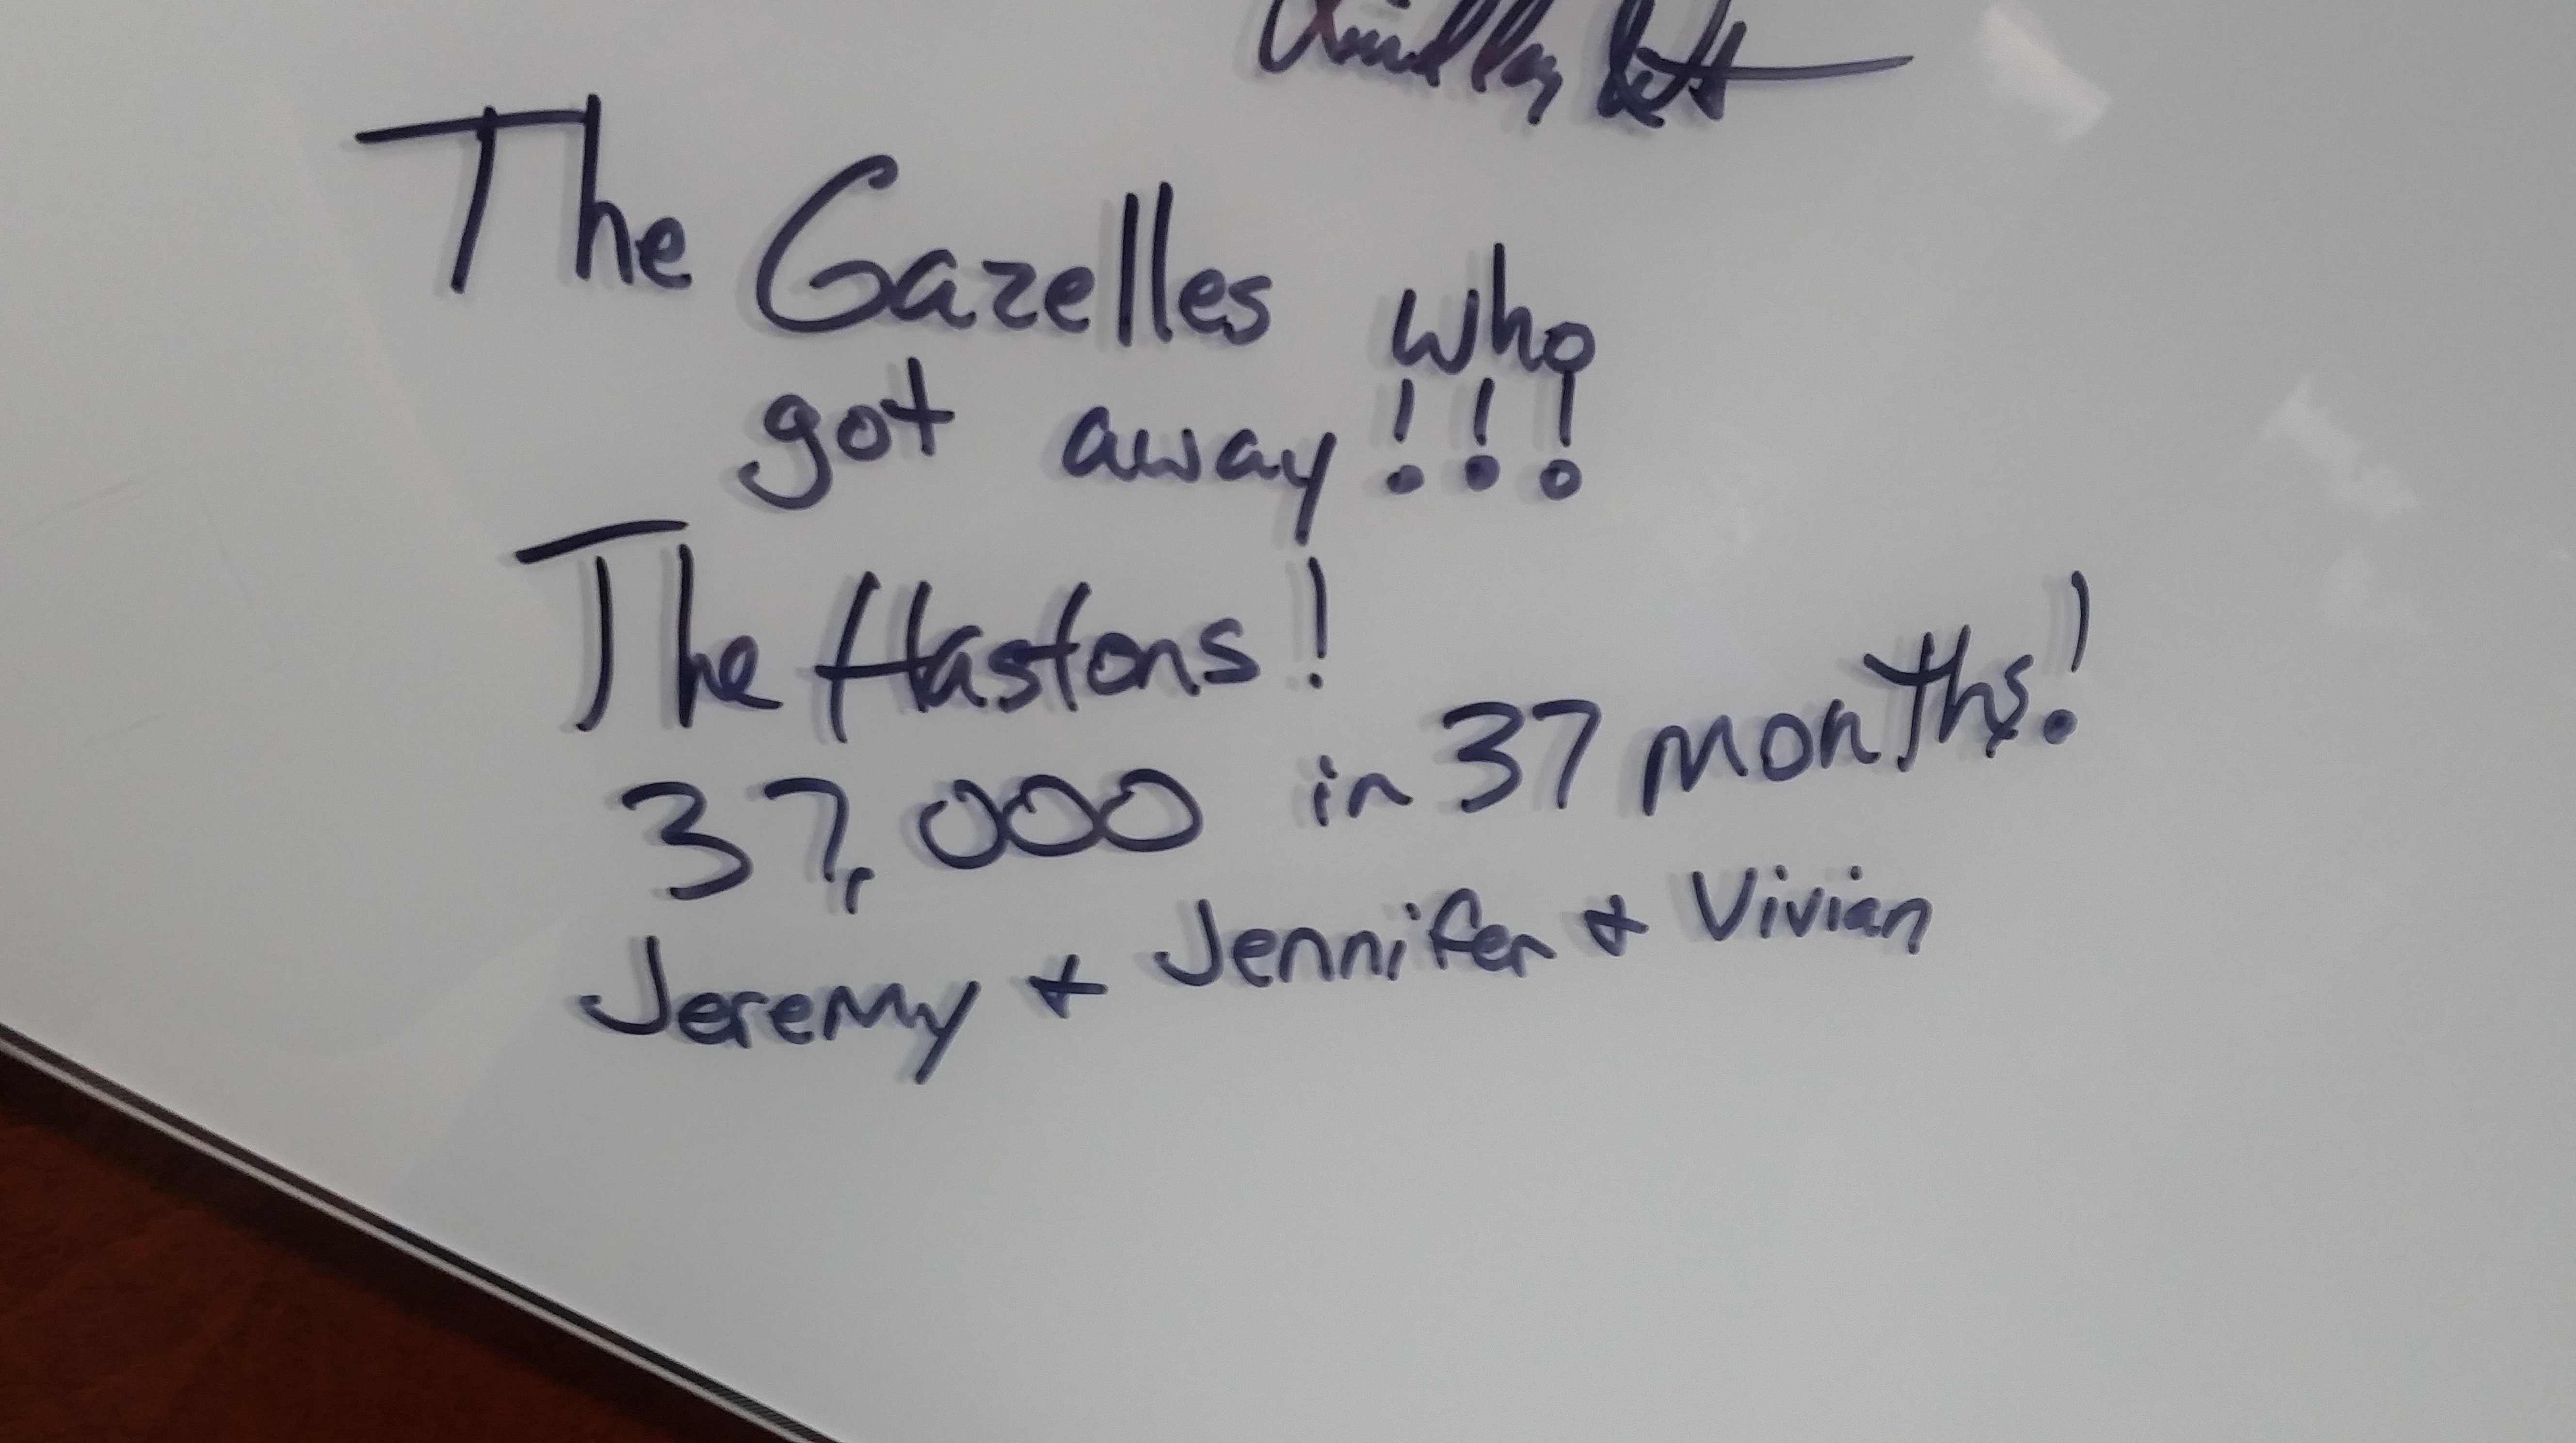 The Gazelles who
got away!!!
The Hastons!
37,000 in 37 months!
Jeremy & Jennifer & Vivian